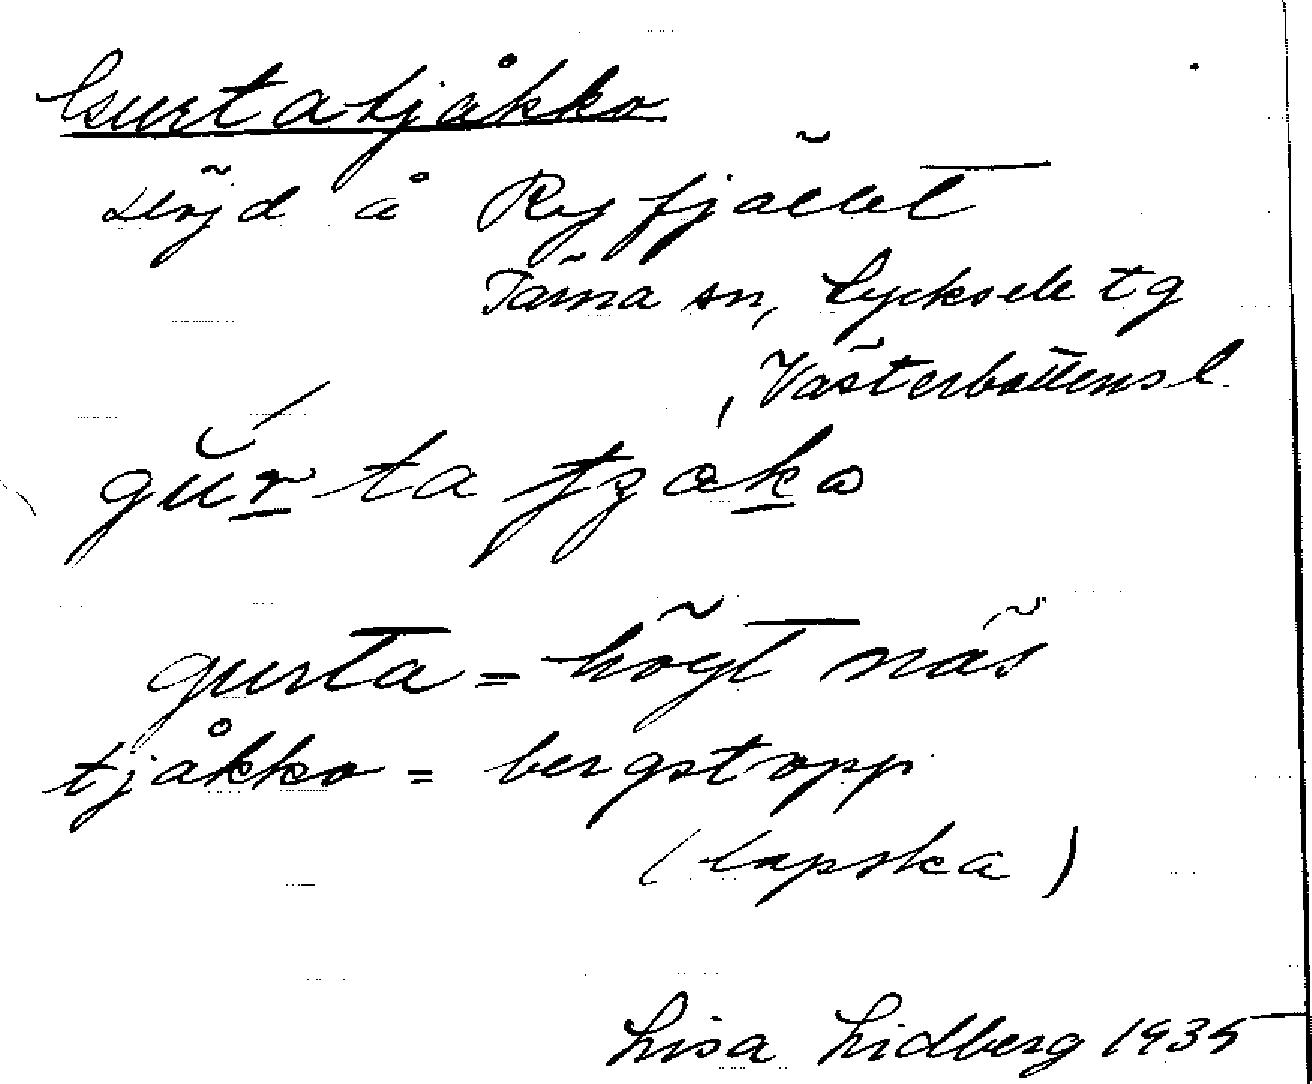 Gurtatjåkko
Höjd å Ryfjället
Tärna sn, Lycksele tg
, Västerbottens l.
gurta
gurta = högt näs
tjåkko = bergstopp
(lapska)
Lisa Lidberg 1935